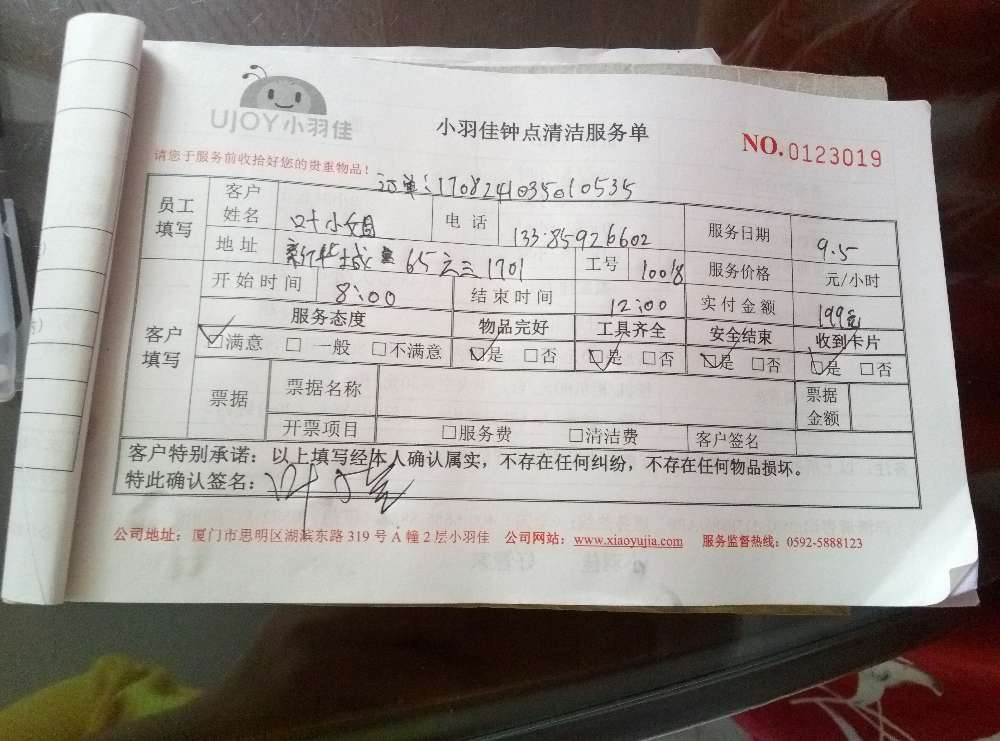 UJOY小羽佳
小羽佳钟点清洁服务单
NO.0123019
请您于服务前收拾好您的贵重物品!
订单:1708241035010535
员工填写
客户姓名 叶小姐 电话 13385926602 服务日期 9.5
地址 65 1701 工号 10018 服务价格 元/小时
开始时间 8:00 结束时间 12:00 实付金额 199元
客户填写
服务态度 物品完好 工具齐全 安全结束 收到卡片
☑满意 □一般 □不满意 ☑是 □否 ☑是 □否 ☑是 □否 ☑是 □否
票据 票据名称 票据金额
开票项目 □服务费 □清洁费 客户签名
客户特别承诺:以上填写经本人确认属实,不存在任何纠纷,不存在任何物品损坏。
特此确认签名:
公司地址:厦门市思明区湖滨东路 319 号 A 幢 2 层小羽佳 公司网站:www.xiaoyujia.com 服务监督热线:0592-5888123